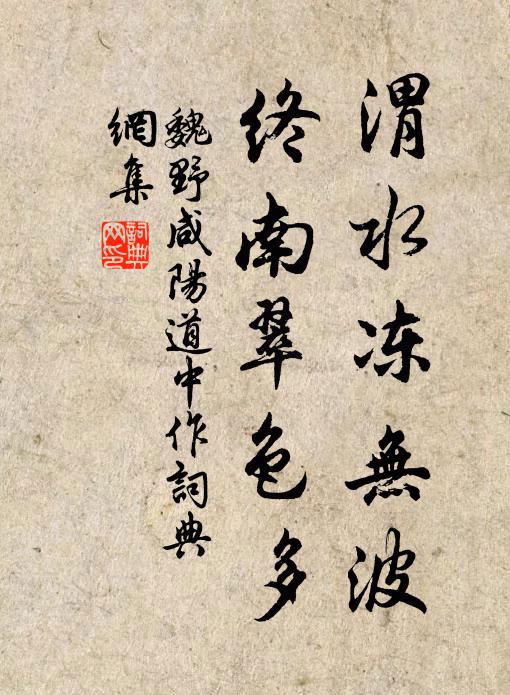 渭水冻無波
终南翠色多
魏野咸陽道中作詞典
網集
詞典
网印